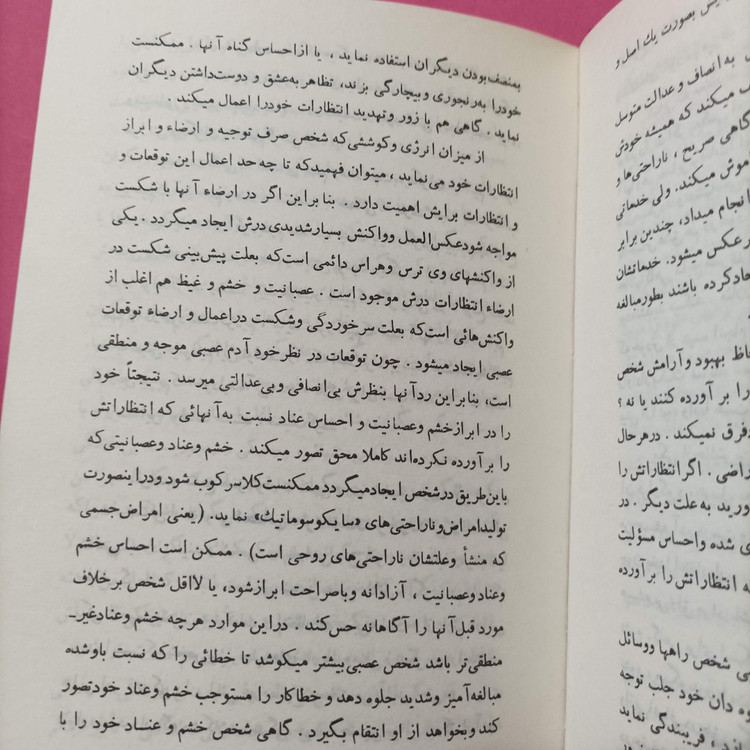 بمنصف‌بودن دیگران استفاده نماید ، یا ازاحساس گناه آنها . ممکنست
خودرا به‌رنجوری وبیچارگی بزند، تظاهر به‌عشق و دوست‌داشتن دیگران
نماید . گاهی هم با زور وتهدید انتظارات خودرا اعمال میکند .
از میزان انرژی وکوششی‌که شخص صرف توجیه و ارضاء و ابراز
انتظارات خود می‌نماید ، میتوان فهمیدکه تا چه‌حد اعمال این توقعات و
و انتظارات برایش اهمیت دارد . بنابراین اگر در ارضاء آنها با شکست
مواجه شودعکس‌العمل وواکنش بسیارشدیدی درش ایجاد میگردد . یکی
از واکنشهای وی ترس وهراس دائمی است‌که بعلت پیش‌بینی شکست در
ارضاء انتظارات درش موجود است . عصبانیت و خشم و غیظ هم اغلب از
واکنش‌هائی است‌که بعلت سرخوردگی وشکست دراعمال و ارضاء توقعات
عصبی ایجاد میشود . چون توقعات در نظرخود آدم عصبی موجه و منطقی
است، بنابراین ردآنها بنظرش بی‌انصافی وبی‌عدالتی میرسد . نتیجتاً خود
را در ابرازخشم وعصبانیت و احساس عناد نسبت به‌آنهائی که انتظاراتش
را برآورده نکرده‌اند کاملا محق تصور میکند . خشم وعناد وعصبانیتی‌که
باین‌طریق درشخص ایجادمیگردد ممکنست‌کلاسرکوب شود ودراینصورت
تولیدامراض‌وناراحتی‌های «سایکوسوماتیك» نماید. (یعنی امراض‌جسمی
که منشأ وعلتشان ناراحتی‌های روحی است) . ممکن است احساس خشم
وعنادوعصبانیت ، آزادانه وباصراحت ابرازشود، یا لااقل شخص برخلاف
مورد قبل‌آنها را آگاهانه حس‌کند . دراین موارد هرچه خشم وعنادغیر-
منطقی‌تر باشد شخص عصبی‌بیشتر میکوشد تا خطائی را که نسبت باوشده
مبالغه‌آمیز وشدید جلوه دهد و خطاکار را مستوجب خشم وعناد خودتصور
کند وبخواهد از او انتقام بگیرد . گاهی شخص خشم و عنـاد خود را با
بصورت یك اصل و
به‌انصاف و عدالت متوسل
میکند که همیشه خودش
صریح ، ناراحتی‌ها و
میکند. ولی خدماتی
انجام میداد، چندین برابر
عکس میشود. خدماتشان
کرده باشند بطورمبالغه
بهبود وآرامش شخص
را برآورده کنند یا نه ؟
فرق نمیکند . درهرحال
راضی . اگرانتظاراتش را
به علت دیگر . در
شده واحساس مسؤلیت
انتظاراتش را برآورده
شخص راهها ووسائل
دان خود جلب توجه
، فریبندگی نماید